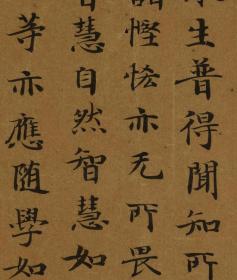 生普得聞知所
諸慳悋亦无所畏
智慧自然智慧如
等亦應随學如